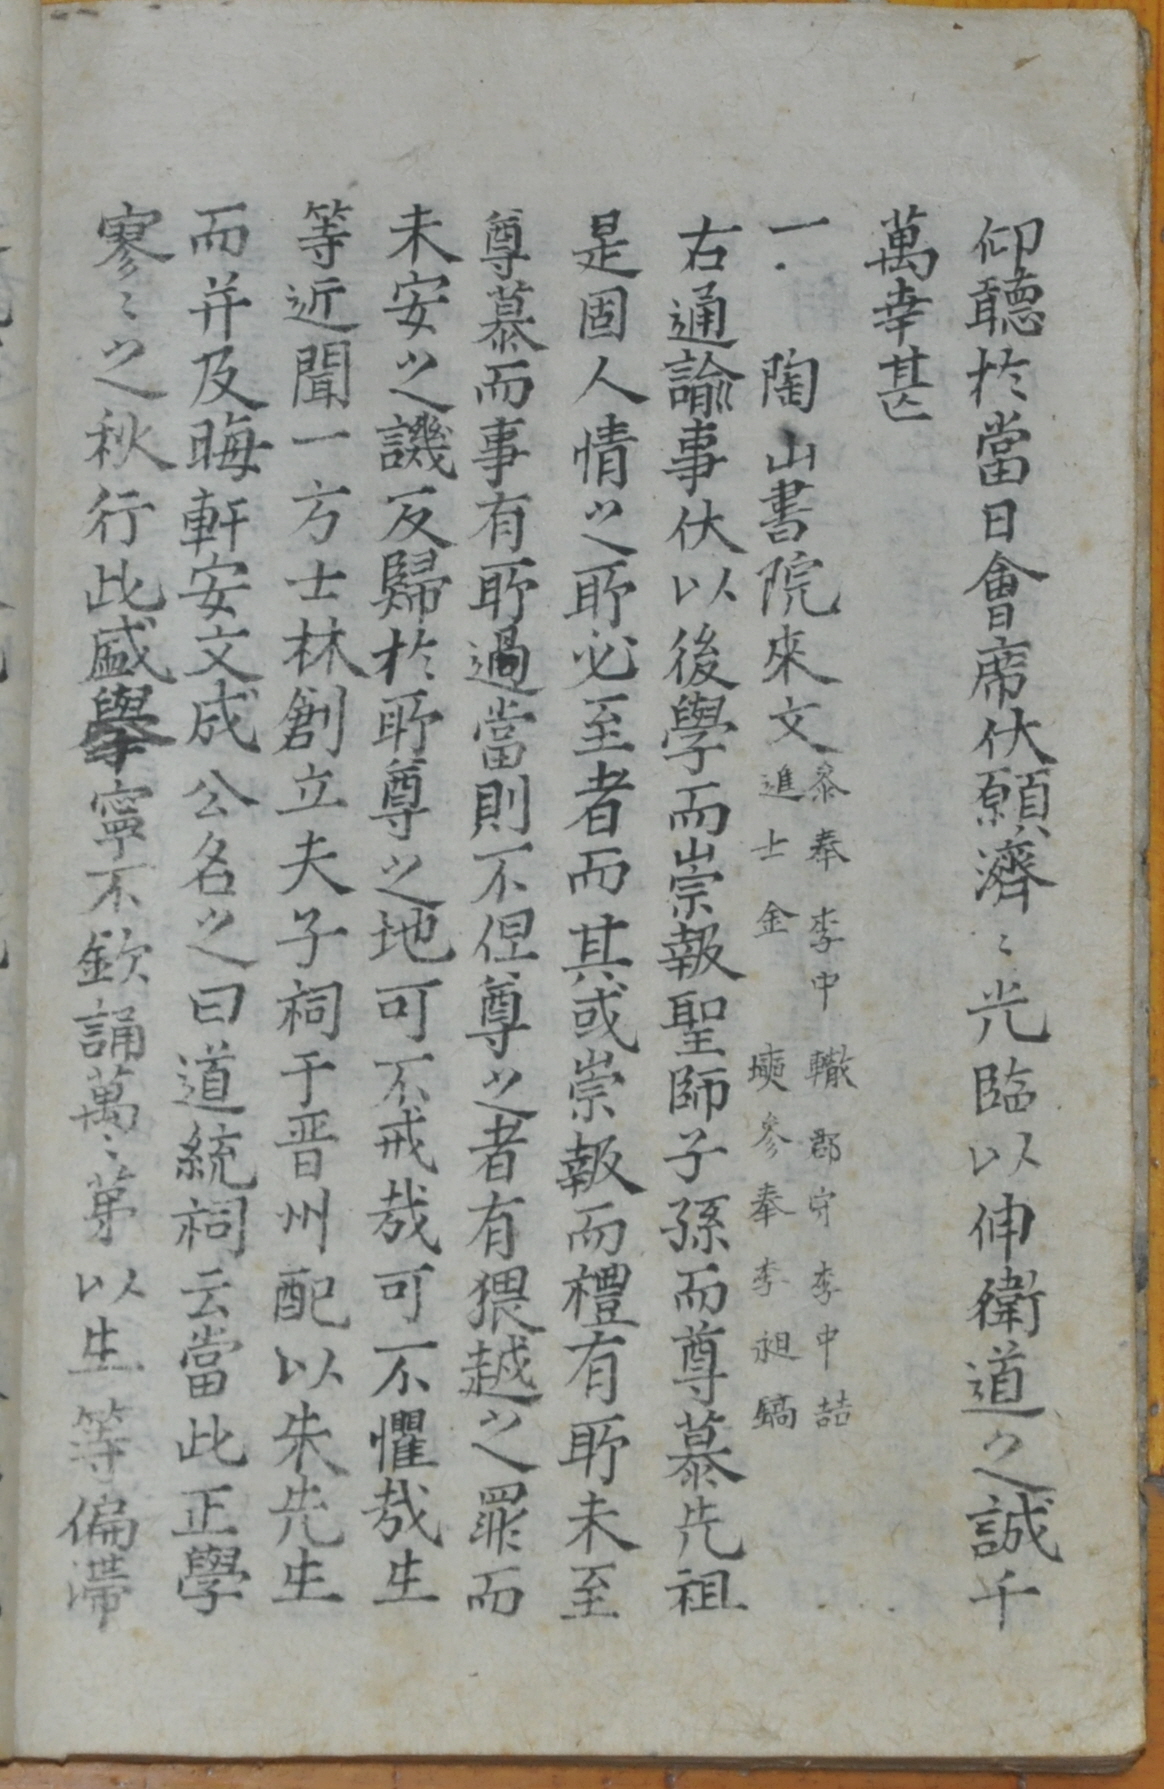 仰聽於當日會席伏願濟〻光臨以伸衛道之誠千
萬幸甚
一 陶山書院來文
參奉李中轍 郡守李中喆
進士金 㙉 參奉李昶鎬
右通諭事伏以後學而崇報聖師子孫而尊慕先祖
是固人情之所必至者而其或崇報而禮有所未至
尊慕而事有所過當則不但尊之者有猥越之罪而
未安之譏反歸於所尊之地可不戒哉可不懼哉生
等近聞一方士林創立夫子祠于晋州配以朱先生
而并及晦軒安文成公名之曰道統祠云當此正學
寥〻之秋行此盛擧寧不欽誦萬〻第以生等偏滯